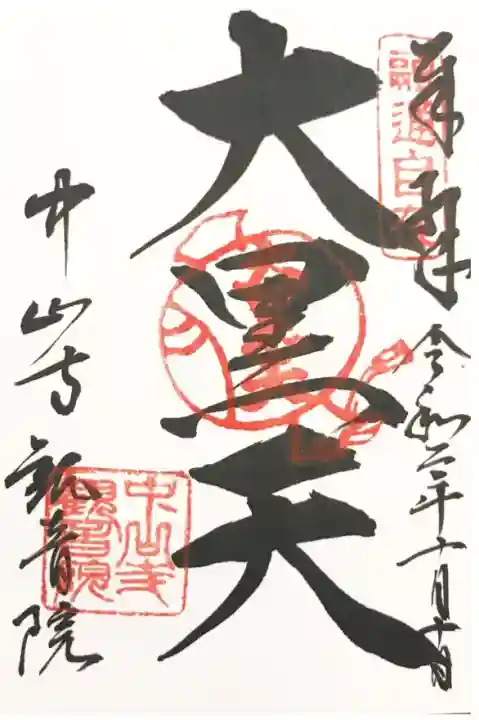 奉拝
令和二年十月十日
融通自在
大黒天
中山寺観音院
中山寺
観音院